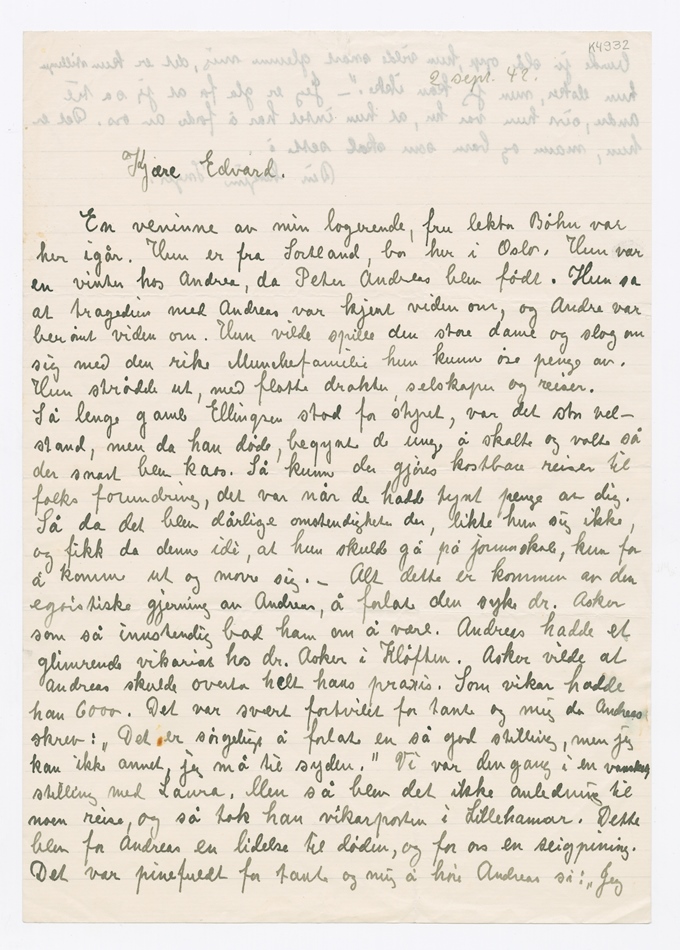 K4932
2 sept. 42.
Kjære Edvard.
En veninne av min logerende, fru lektor Bøhn var
her igår. Hun er fra Sortland, bor her i Oslo. Hun var
en vinter hos Andrea, da Peter Andreas blev født. Hun sa
at tragedien med Andreas var kjent viden om, og Andrea var
berømt viden om. Hun vilde spille den store dame og slog om
sig med den rike Munchefamilie hun kunne øse penge av.
Hun strødde ut, med flotte drakter, selskaper og reiser.
Så lenge gamle Ellingsen stod for styret, var det stor vel-
stand, men da han døde, begynte de unge å skalte og valte så
der snart blev kaos. Så kunne der gjøres kostbare reiser til
folks forundring, det var når de hadde pynt penge av dig.
Så da det blev dårlige omstendigheter der, likte hun sig ikke,
og fikk da denne idè, at hun skulde gå på jormorskole, kun for
å komme ut og more sig. – Alt dette er kommen av den
egoistiske gjerning av Andreas, å forlate den syke dr. Asker
som så innstendig bad ham om å være. Andreas hadde et
glimrende vikariat hos dr. Asker i Kløften. Asker vilde at
Andreas skulde overta helt hans praxis. Som vikar hadde
han 6000. Det var svært fortvilet for tante og mig da Andreas
skrev: „Det er sørgelig å forlate en så god stilling, men jeg
kan ikke annet, jeg må til syden." Vi var dengang i en vanskelig
stilling med Laura. Men så blev det ikke anledning til
noen reise, og så tok han vikarposten i Lillehamar. Dette
blev for Andreas en lidelse til døden, og for os en seigpining.
Det var pinefuldt for tante og mig å høre Andreas si: „Jeg